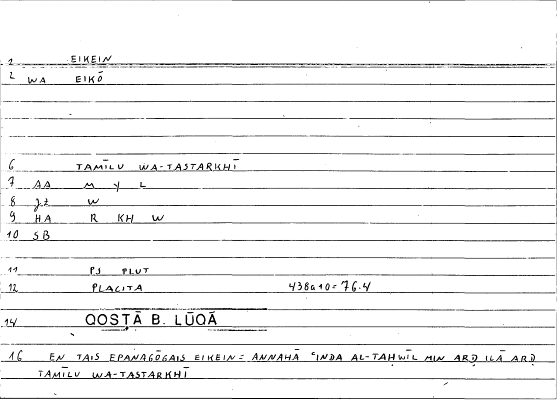 1 EIKEIN
2 WA EIKŌ
6 TAMĪLU WA-TASTARKHĪ
7 AA M Y L
8 W
9 HA R KH W
10 SB
11 PS PLUT
12 PLACITA 438a10 = 76.4
14 QOSṬĀ B. LŪQĀ
16 EN TAIS EPANAGŌGAIS EIKEIN = ANNAHĀ ʿINDA AL-TAḤWĪL MIN ARḌ ILĀ ARḌ
TAMĪLU WA-TASTARKHĪ